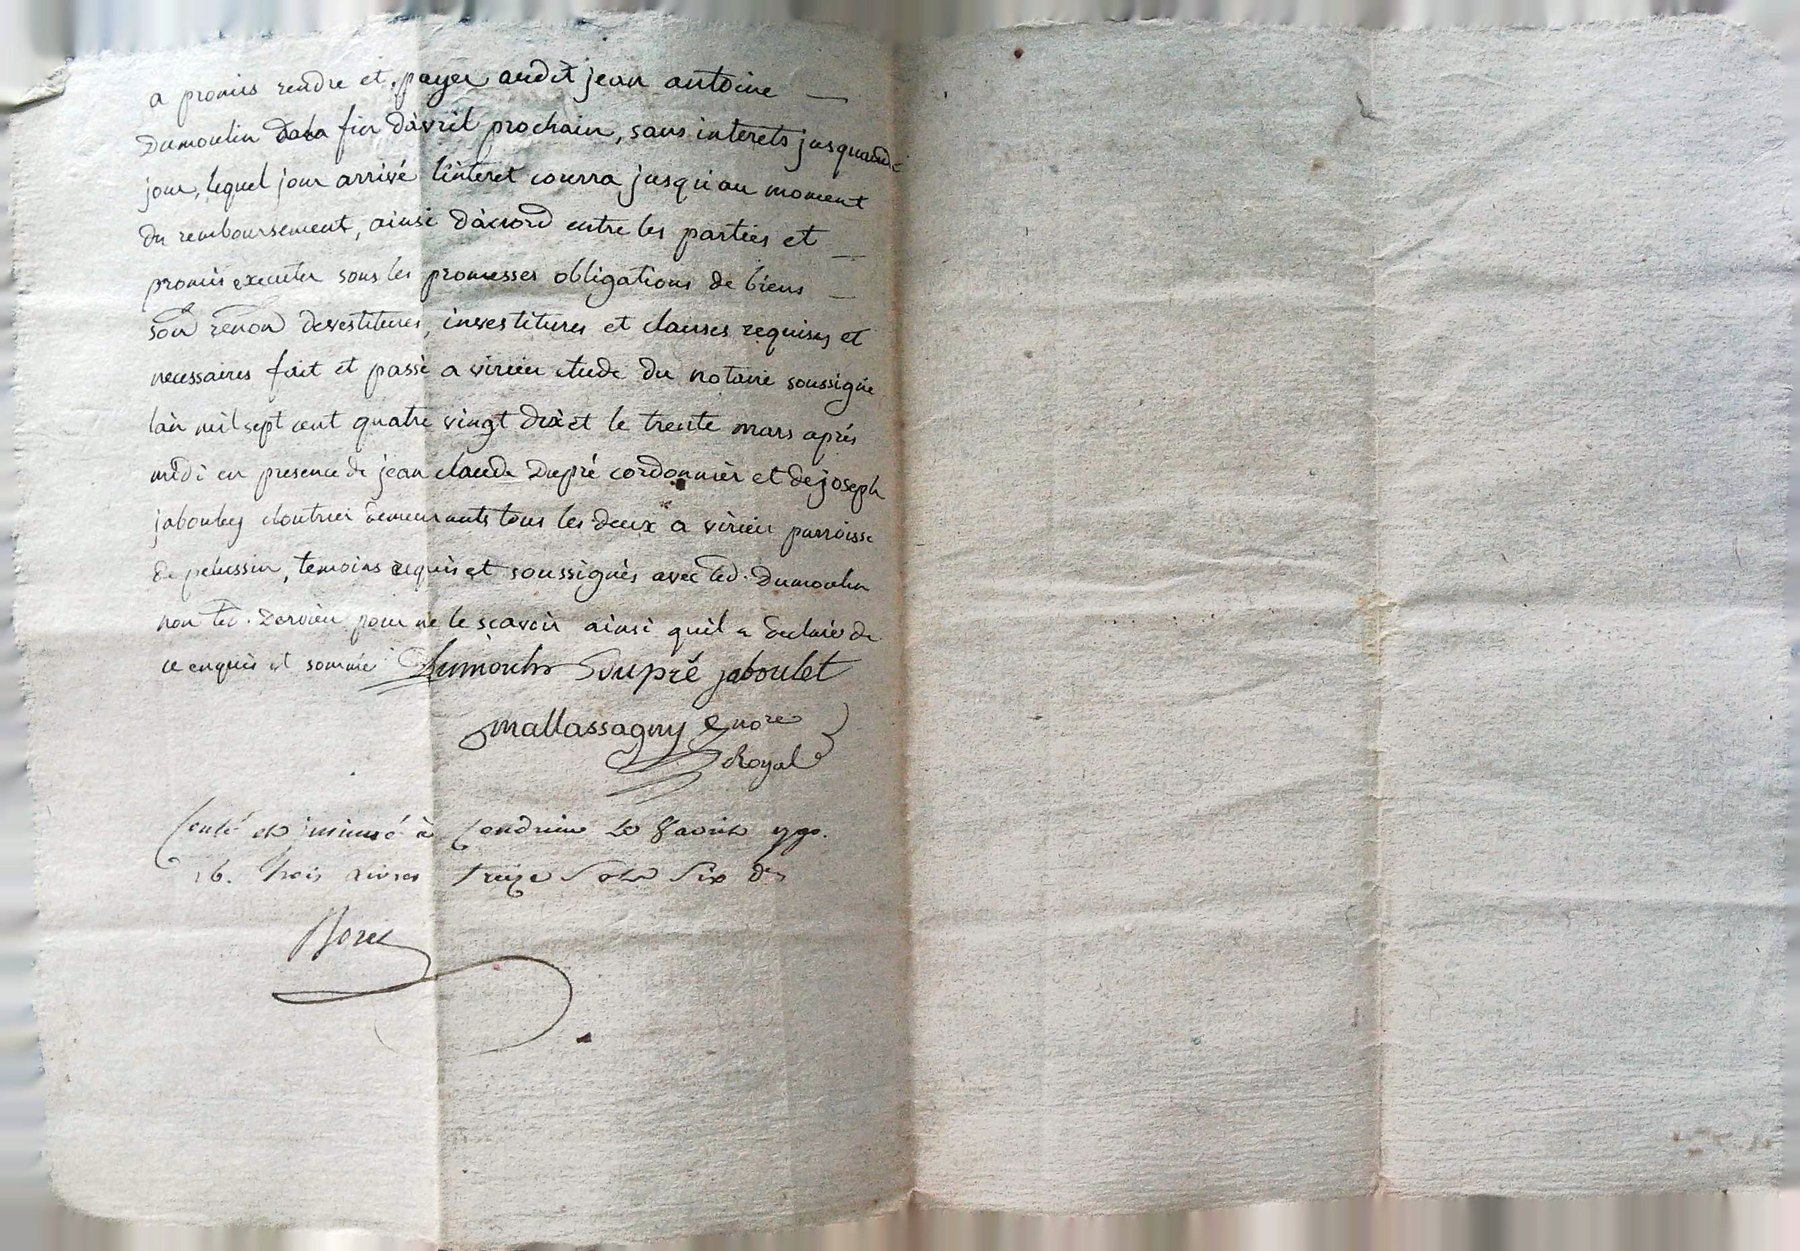 a promis rendre et payer audit jean antoine
Dumoulin dala fin d'avril prochain, sans interets jusquaudt
jour, lequel jour arrivé l'interet courra jusqu'au moment
du remboursement, ainsi d'accord entre les parties et
promis executer sous les promesses obligations de biens
renon devestitures, investitures et clauses requises et
necessaires fait et passé a virieu etude du notaire soussigné
l'an mil sept cent quatre vingt dix et le trente mars aprés
midi en presence de jean claude Dupré cordonnier et de joseph
jabouley cloutrier demeurants tous les deux a virieu parroisse
de pelussin, temoins requis et soussignés avec led. Dumoulin
non led. Zervieu pour ne le scavoir ainsi quil a declaré de
ce enquis et sommé Dumoulin Dupré jaboulet
Mallassagny nore
Royal
Conlé et insinué à Condrieu le 8 avril 1790.
R. trois livres treize sols six drs
Boret